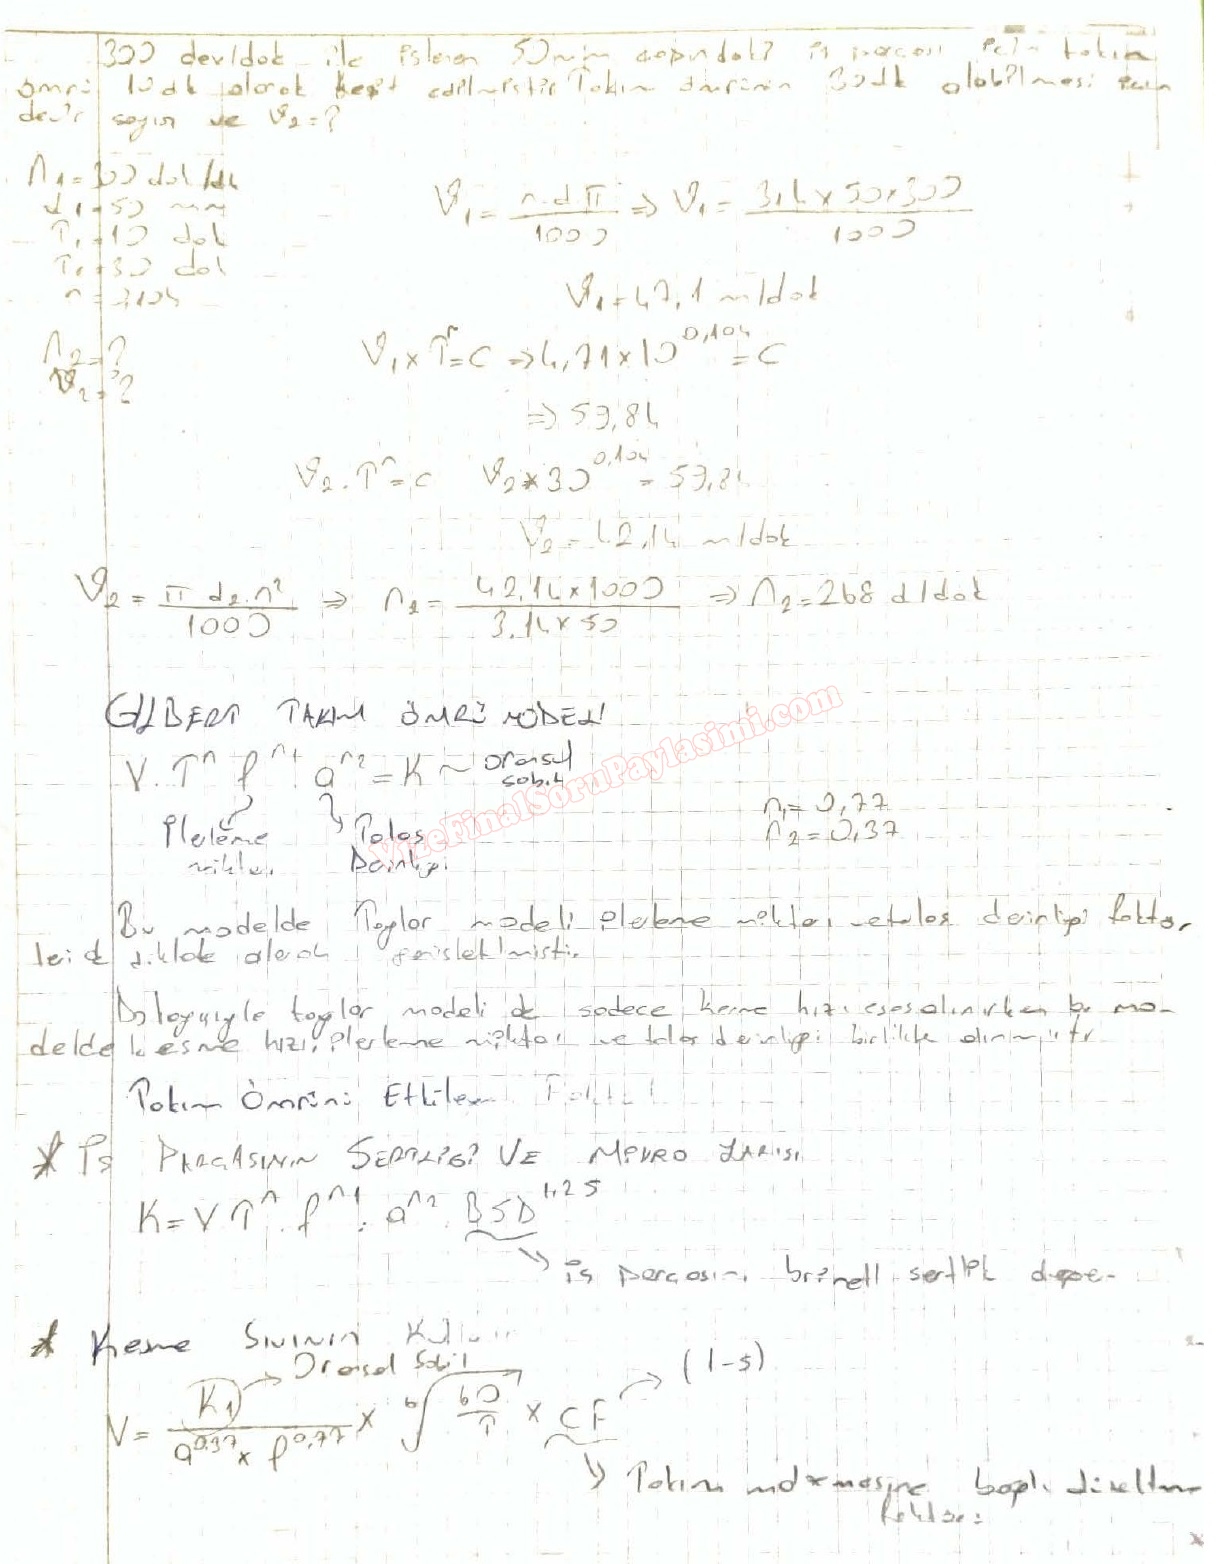 300 dev/dak ile işlenen 50 mm çapındaki iş parçası için takım
ömrü 10 dk olarak tespit edilmiştir Takım ömrünün 30 dk olabilmesi için
devir sayısı ve V2=?
n1=300 dev/dk
d1=50 mm
T1=10 dak
T2=30 dak
n=0,104
n2=?
V2=?
V1= n.d.π / 1000 ⇒ V1= 3,14x50x300 / 1000
V1=47,1 m/dak
V1 x T^n = C ⇒ 4,71x10^0,104 = C
⇒ 59,84
V2.T^n=C V2x30^0,104 = 59,84
V2=42,14 m/dak
V2= π d2.n2 / 1000 ⇒ n2= 42,14x1000 / 3,14x50 ⇒ n2=268 d/dak
GILBERT TAKIM ÖMRÜ MODELİ
V.T^n f^n1.a^n2=K ~ Oransal sabit
İlerleme miktarı
Talaş Derinliği
n1=0,77
n2=0,37
Bu modelde Taylor modeli ilerleme miktarı ve talaş derinliği faktör
leri de
Dolayısıyla taylor modeli de sadece kesme hızı esas alınırken bu mo-
delde kesme hızı, ilerleme miktarı ve talaş derinliği birlikte alınmıştır
Takım Ömrünü Etkileyen
* İş PARÇASININ SERTLİĞİ VE MİKRO YAPISI
K=V T^n.f^n1.a^n2.BSD^1,25
iş parçasının brinell sertlik değe-
* Kesme Sıvının
Oransal Sabit
V= K1 / a^0,37 x f^0,77 x 6√60/T x CF
(1-5)
Takım bağlı düzeltme
faktörü
VizeFinalSoruPaylasimi.com